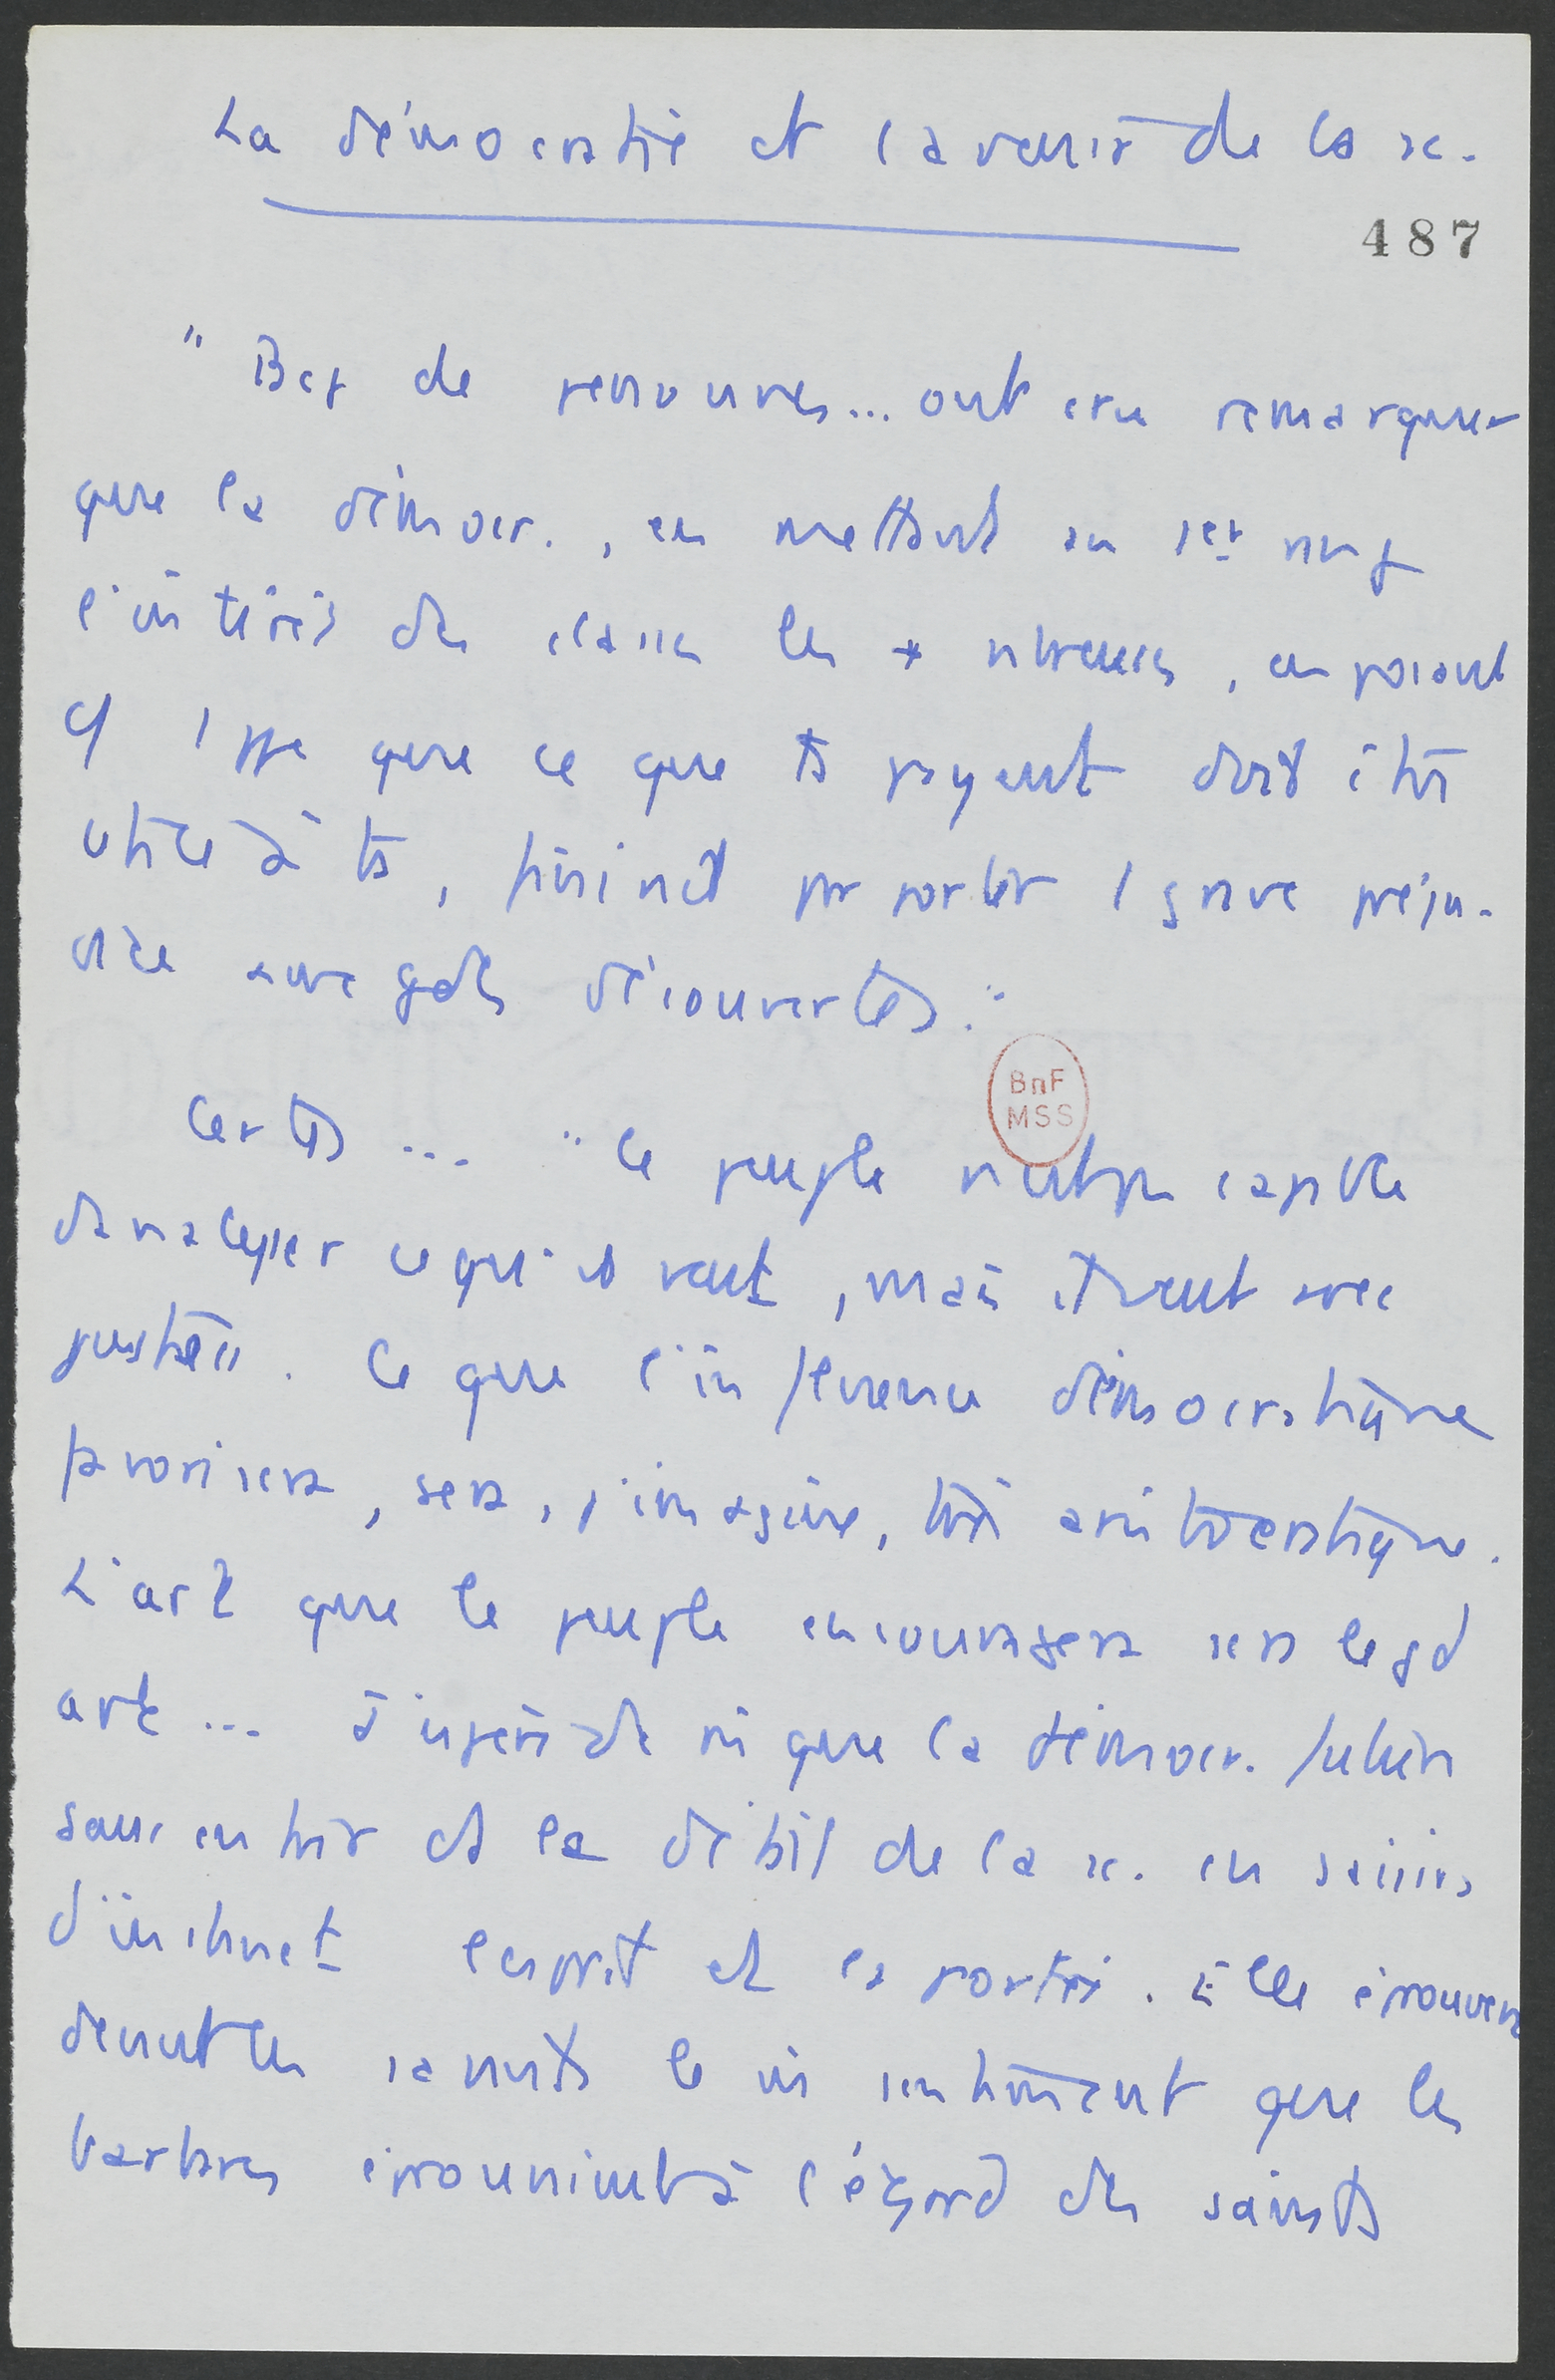 La démocratie et l'avenir de la sc.
487
" Bcp de personnes... ont cru remarquer
que la démocr., en mettant au 1er rang
l'intérêt des classes les + nbreuses, en posant
c/ 1 ppe que ce que ts payent doit être
utile à ts, finirait par porter 1 grave préju-
dice aux gdes découvertes."
BnF
MSS
Certes ... " le peuple n'est pas capable
d'analyser ce qu'il veut, mais il veut avec
justesse. Ce que l'influence démocratique
favorisera, sera, j'imagine, très aristocratique.
L'art que le peuple encouragera sera le gd
art ... J'espère de mê que la démocr.
sans entrer ds le détail de la sc. en saisira
d'instinct l'esprit et la portée. Elle éprouvera
devant les savants le mê sentiment que les
barbares éprouvaient à l'égard des saints